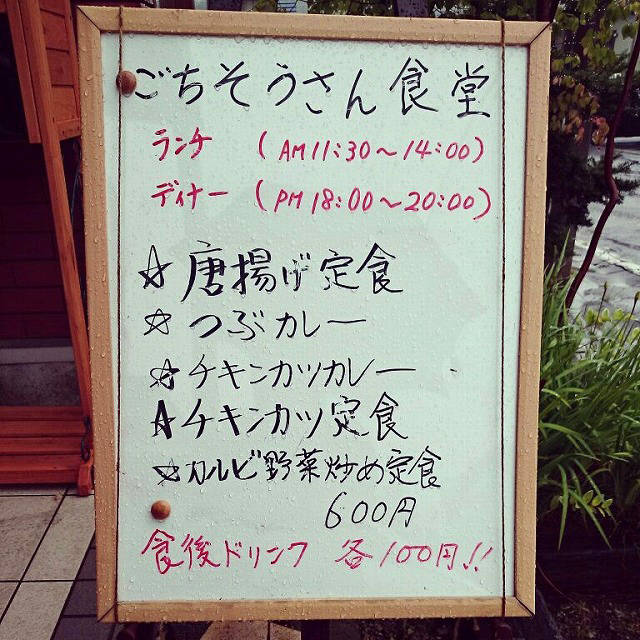 ごちそうさん食堂
ランチ (AM11:30～14:00)
ディナー (PM18:00～20:00)
☆唐揚げ定食
☆つぶカレー
☆チキンカツカレー
☆チキンカツ定食
☆カルビ野菜炒め定食
600円
食後ドリンク 各100円!!